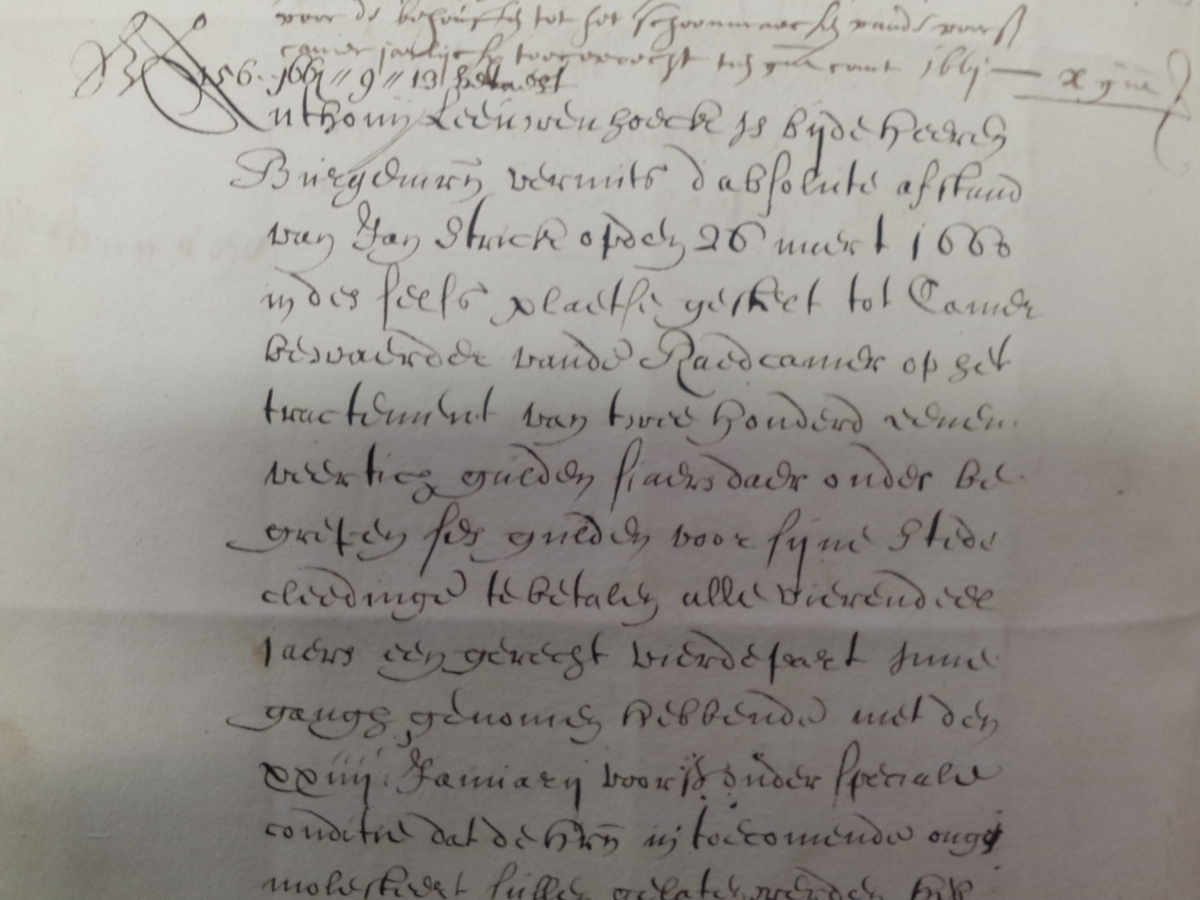 voor de behoufte tot het schoonmaecken vande voors
camer jaerlijcx toegevoecht 166j — x gul
1661 // 9 // 13 betaelt
Anthonij Leeuwenhoeck js bijde heeren
Burgemrn vermits d'absolute afstand
van Jan Strick opden 26 maert 1660
in des selfs plaetse gestelt tot Camer
bewaerder vande Raedcamer op het
tractement van twee honderd eenen
veertich gulden siaers daer onder be
grepen ses gulden voor sijne Stede
cleedinge te betalen alle vierendeel
jaers een gerecht vierdepart sijne
gangh genomen hebbende met den
xxiiij. January voors onder speciale
conditie dat de hrn in toecomende onge
molesteert sullen gelaten werden